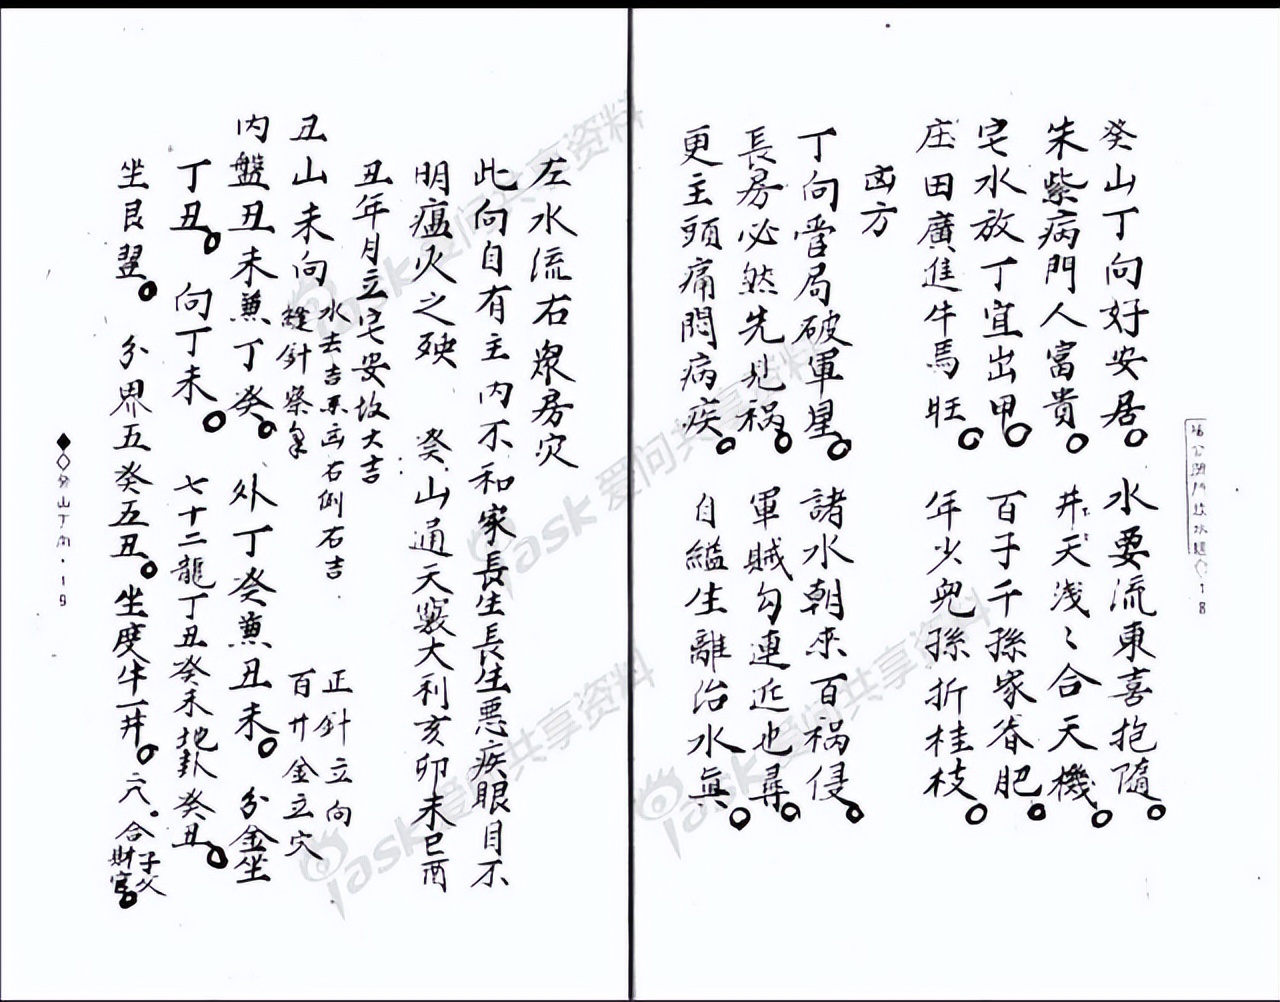 癸山丁向好安居。水要流東喜抱隨。
朱紫病門人富貴。井天淺〻合天機。
宅水放丁宜出甲。百子千孫家眷肥。
庄田廣進牛馬旺。年少兒孫折桂枝。
凶方
丁向管局破軍星。諸水朝來百禍侵。
長房必然先見禍。軍賊勾連近也尋。
更主頭痛悶病疾。自縊生離治水真。
18
左水流右眾房災
此向自有主內不和家長生長生悪疾眼目不
明瘟火之殃 癸山通天竅大利亥卯未巳酉
丑年月立宅安坟大吉
丑山未向 水去吉 凶右倒右吉 正針立向
縫針察氣 百廿金立穴
內盤丑未兼丁癸。外丁癸兼丑未。分金坐
丁丑。向丁未。七十二龍丁丑癸未地卦癸丑。
坐艮翌。分界五癸五丑。坐度牛一井。穴。合子父
財官。
山丁向·19
iask爱问共享资料
iask爱问共享资料
iask爱问共享资料
iask爱问共享资料